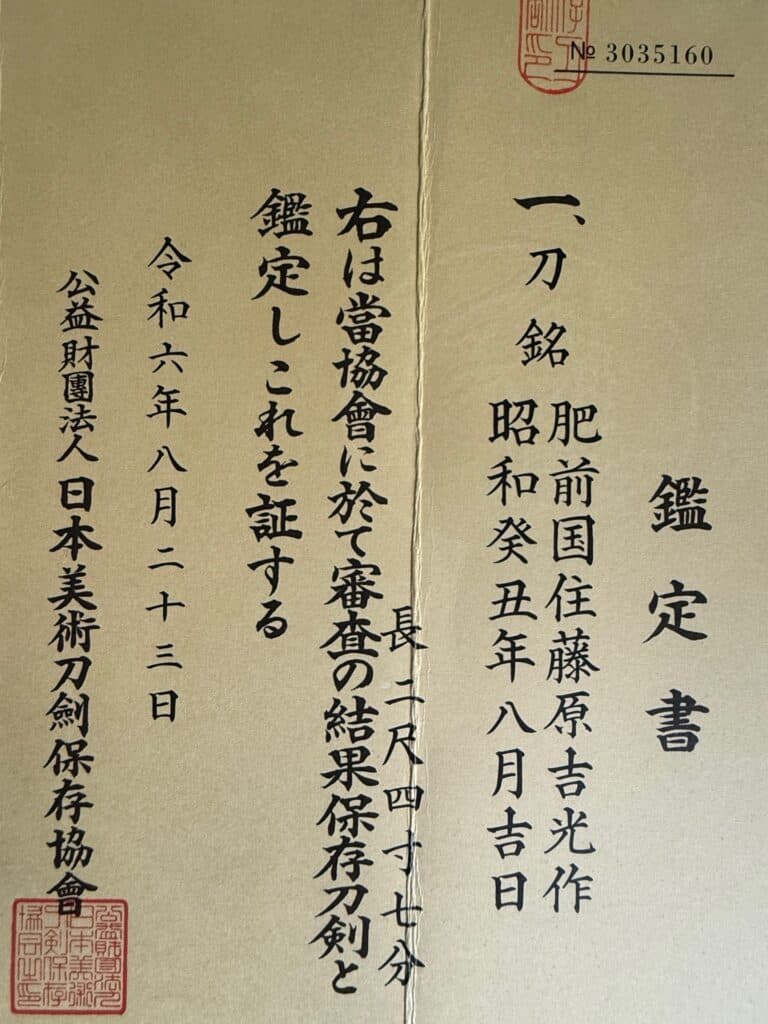 № 3035160
鑑定書
一、刀 銘 肥前国住藤原吉光作
昭和癸丑年八月吉日
長二尺四寸七分
右は當協會に於て審査の結果保存刀剣と
鑑定しこれを証する
令和六年八月二十三日
公益財團法人日本美術刀劍保存協會